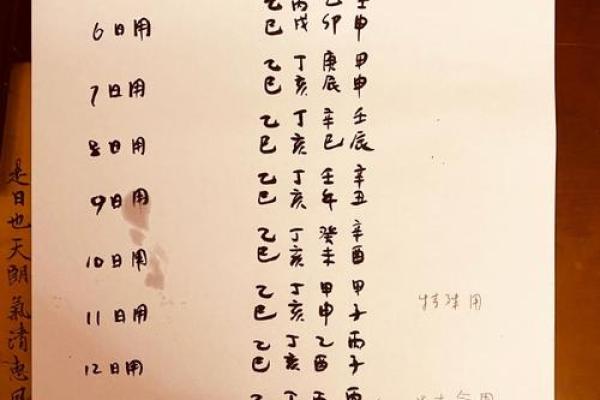 乙 丙 己 壬
6日用 巳 戌 卯 申
乙 丁 庚 甲
7日用 巳 亥 辰 申
乙 丁 辛 壬
8日用 巳 亥 巳 辰
乙 丁 壬 辛
9日用 巳 亥 午 丑
乙 丁 癸 辛
10日用 巳 亥 未 酉
乙 丁 甲 甲
11日用 巳 亥 申 子
特殊用
乙 丁 乙 丙
12日用 巳 亥 酉 子
乙 丁 丙
是日也天朗氣清惠風